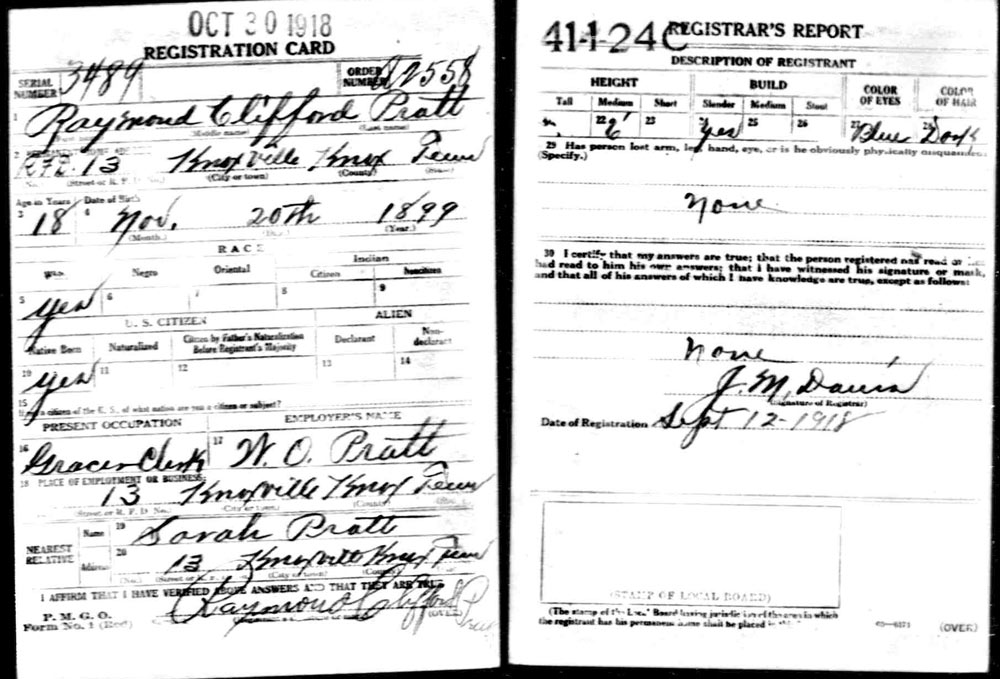 OCT 30 1918
REGISTRATION CARD
SERIAL NUMBER 3489 ORDER NUMBER A2558
1 Raymond Clifford Pratt
(Middle name) (Last name)
2
R.F.D. 13 Knoxville Knox Tenn
(No.) (Street or R. F. D. No.) (City or town) (County) (State)
Age in Years Date of Birth
3 18 4 Nov. 20th 1899
(Month.) (Day.) (Year.)
RACE
White Negro Oriental Indian
Citizen Noncitizen
5 Yes 6 7 8 9
U. S. CITIZEN ALIEN
Native Born Naturalized Citizen by Father's Naturalization Before Registrant's Majority Declarant Non-declarant
10 Yes 11 12 13 14
15
If not a citizen of the U. S., of what nation are you a citizen or subject?
PRESENT OCCUPATION EMPLOYER'S NAME
16 Grocer Clerk 17 W. O. Pratt
18 PLACE OF EMPLOYMENT OR BUSINESS:
13 Knoxville Knox Tenn
(Street or R. F. D. No.) (City or town) (County) (State)
NEAREST RELATIVE Name 19 Sarah Pratt
Address 20 13 Knoxville Knox Tenn
(No.) (Street or R. F. D. No.) (City or town) (County)
I AFFIRM THAT I HAVE VERIFIED ABOVE ANSWERS AND THAT THEY ARE TRUE
P. M. G. O.
Form No. 1 (Red) Raymond Clifford Pratt
(OVER)
41-1-24 C REGISTRAR'S REPORT
DESCRIPTION OF REGISTRANT
HEIGHT BUILD COLOR OF EYES COLOR OF HAIR
Tall Medium Short Slender Medium Stout
22 23 24 Yes 25 26 27 Blue 28 Dark
29 Has person lost arm, leg, hand, eye, or is he obviously physically disqualified?
(Specify.)
None
30 I certify that my answers are true; that the person registered has read or has
had read to him his own answers; that I have witnessed his signature or mark,
and that all of his answers of which I have knowledge are true, except as follows:
None
J. M. Davis
(Signature of Registrar)
Date of Registration Sept 12-1918
(STAMP OF LOCAL BOARD)
(The stamp of the Local Board having jurisdiction of the area in which
the registrant has his permanent home shall be placed in this box.)
(OVER)